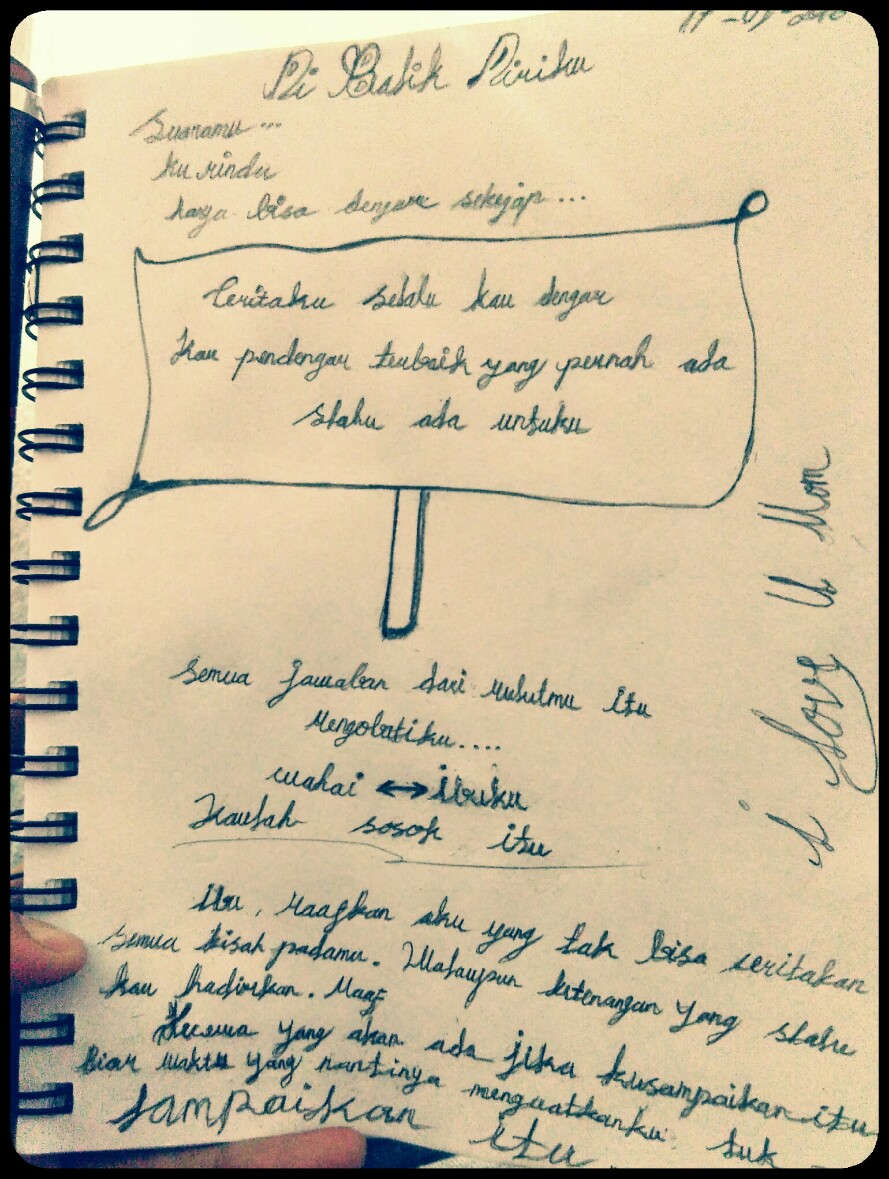 Di Balik Diriku
Suaramu...
ku rindu
hanya bisa dengar sekejap...
Ceritaku selalu kau dengar
Kau pendengar terbaik yang pernah ada
slalu ada untuku
semua jawaban dari mulutmu itu
Mengobatiku....
wahai ↔ ibuku
Kaulah sosok itu
ibu, Maafkan aku yang tak bisa ceritakan
semua kisah padamu. Walaupun ketenangan yang slalu
kau hadirkan. Maaf
Kecewa yang akan ada jika kusampaikan itu
Biar waktu yang nantinya menguatkanku tuk
sampaikan itu
I Love U Mom